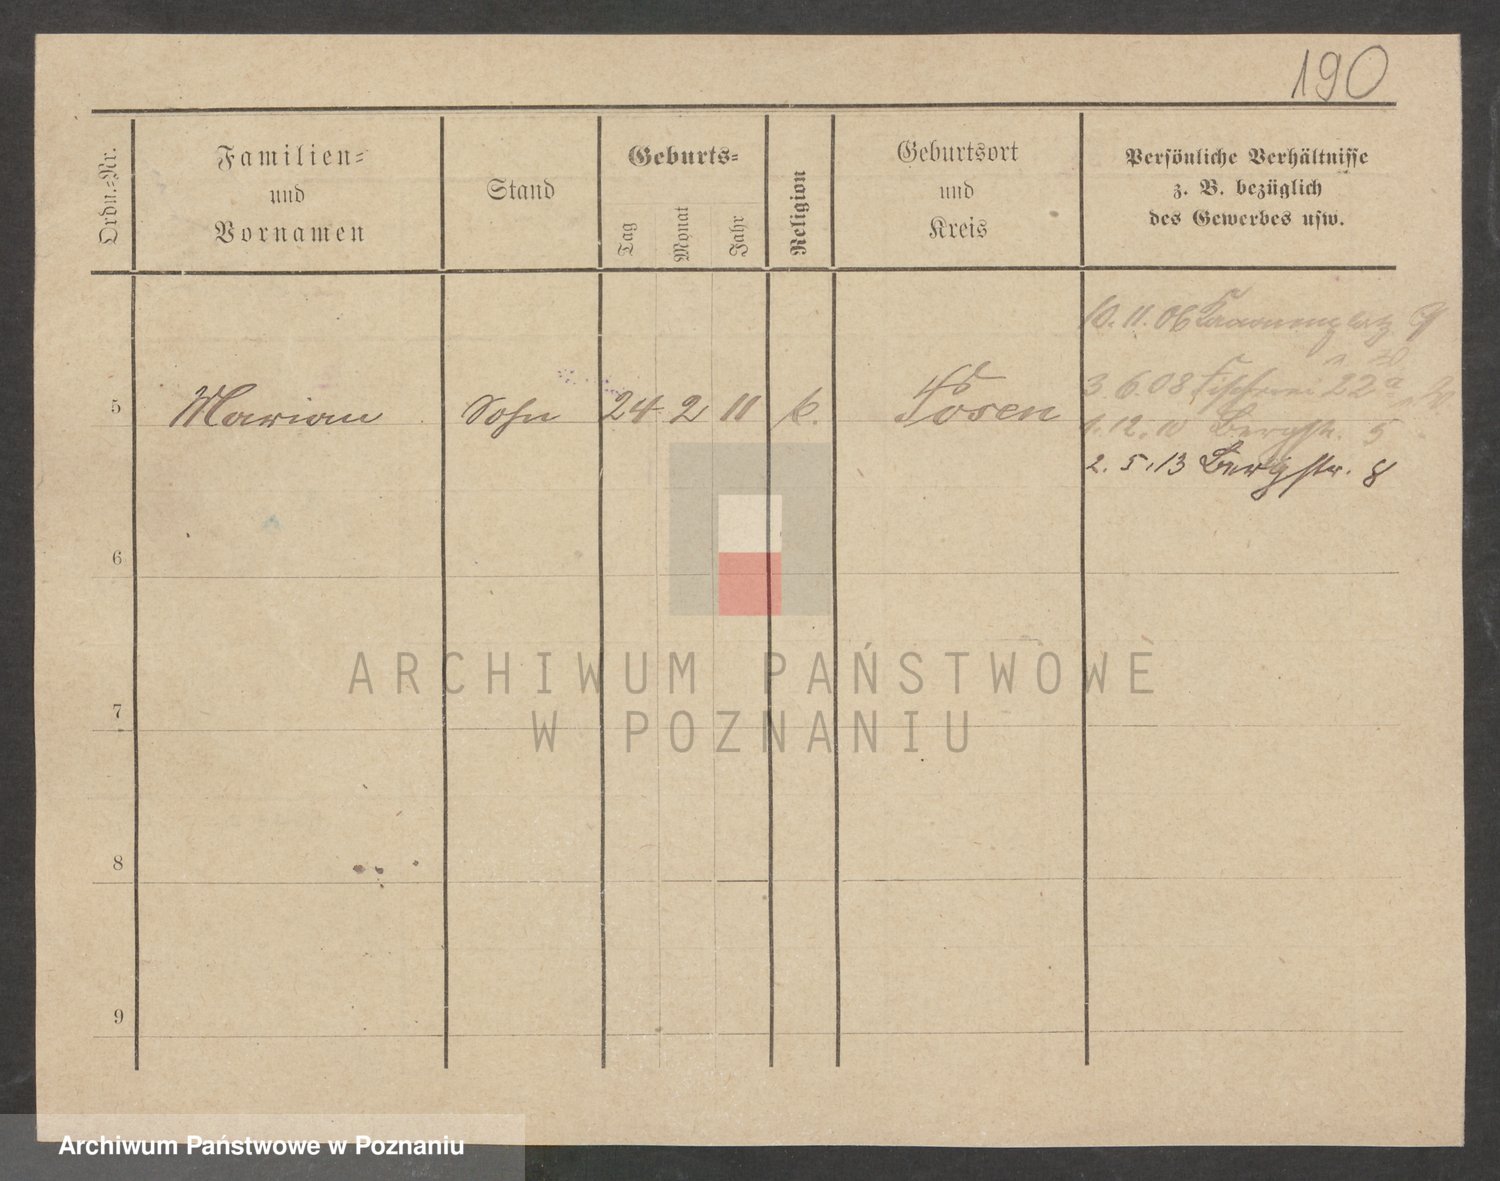 190
Ordn.-Nr.
Familien-
und
Vornamen
Stand
Geburts-
Tag
Monat
Jahr
Religion
Geburtsort
und
Kreis
Persönliche Verhältnisse
z. B. bezüglich
des Gewerbes usw.
10. 11. 06
3. 6. 08 Fischerei 22a
5 Marian Sohn 24 2 11 k. Posen
1. 12. 10 Bergstr. 5
2. 5. 13 Bergstr. 8
6
7
8
9
ARCHIWUM PAŃSTWOWE
W POZNANIU
Archiwum Państwowe w Poznaniu